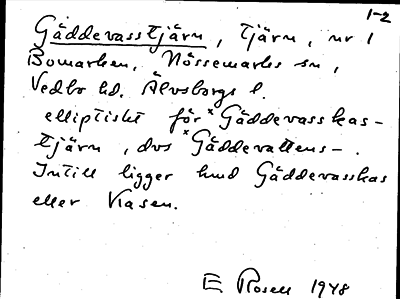 1-2
Gäddevasstjärn, tjärn, nr 1
Bomarken, Nössemarks sn,
Vedbo hd. Älvsborgs l.
elliptiskt för *Gäddevasskas-
tjärn, dvs *Gäddevattens-.
Intill ligger hmd Gäddevasskas
eller Kasen.
E Rosell 1948